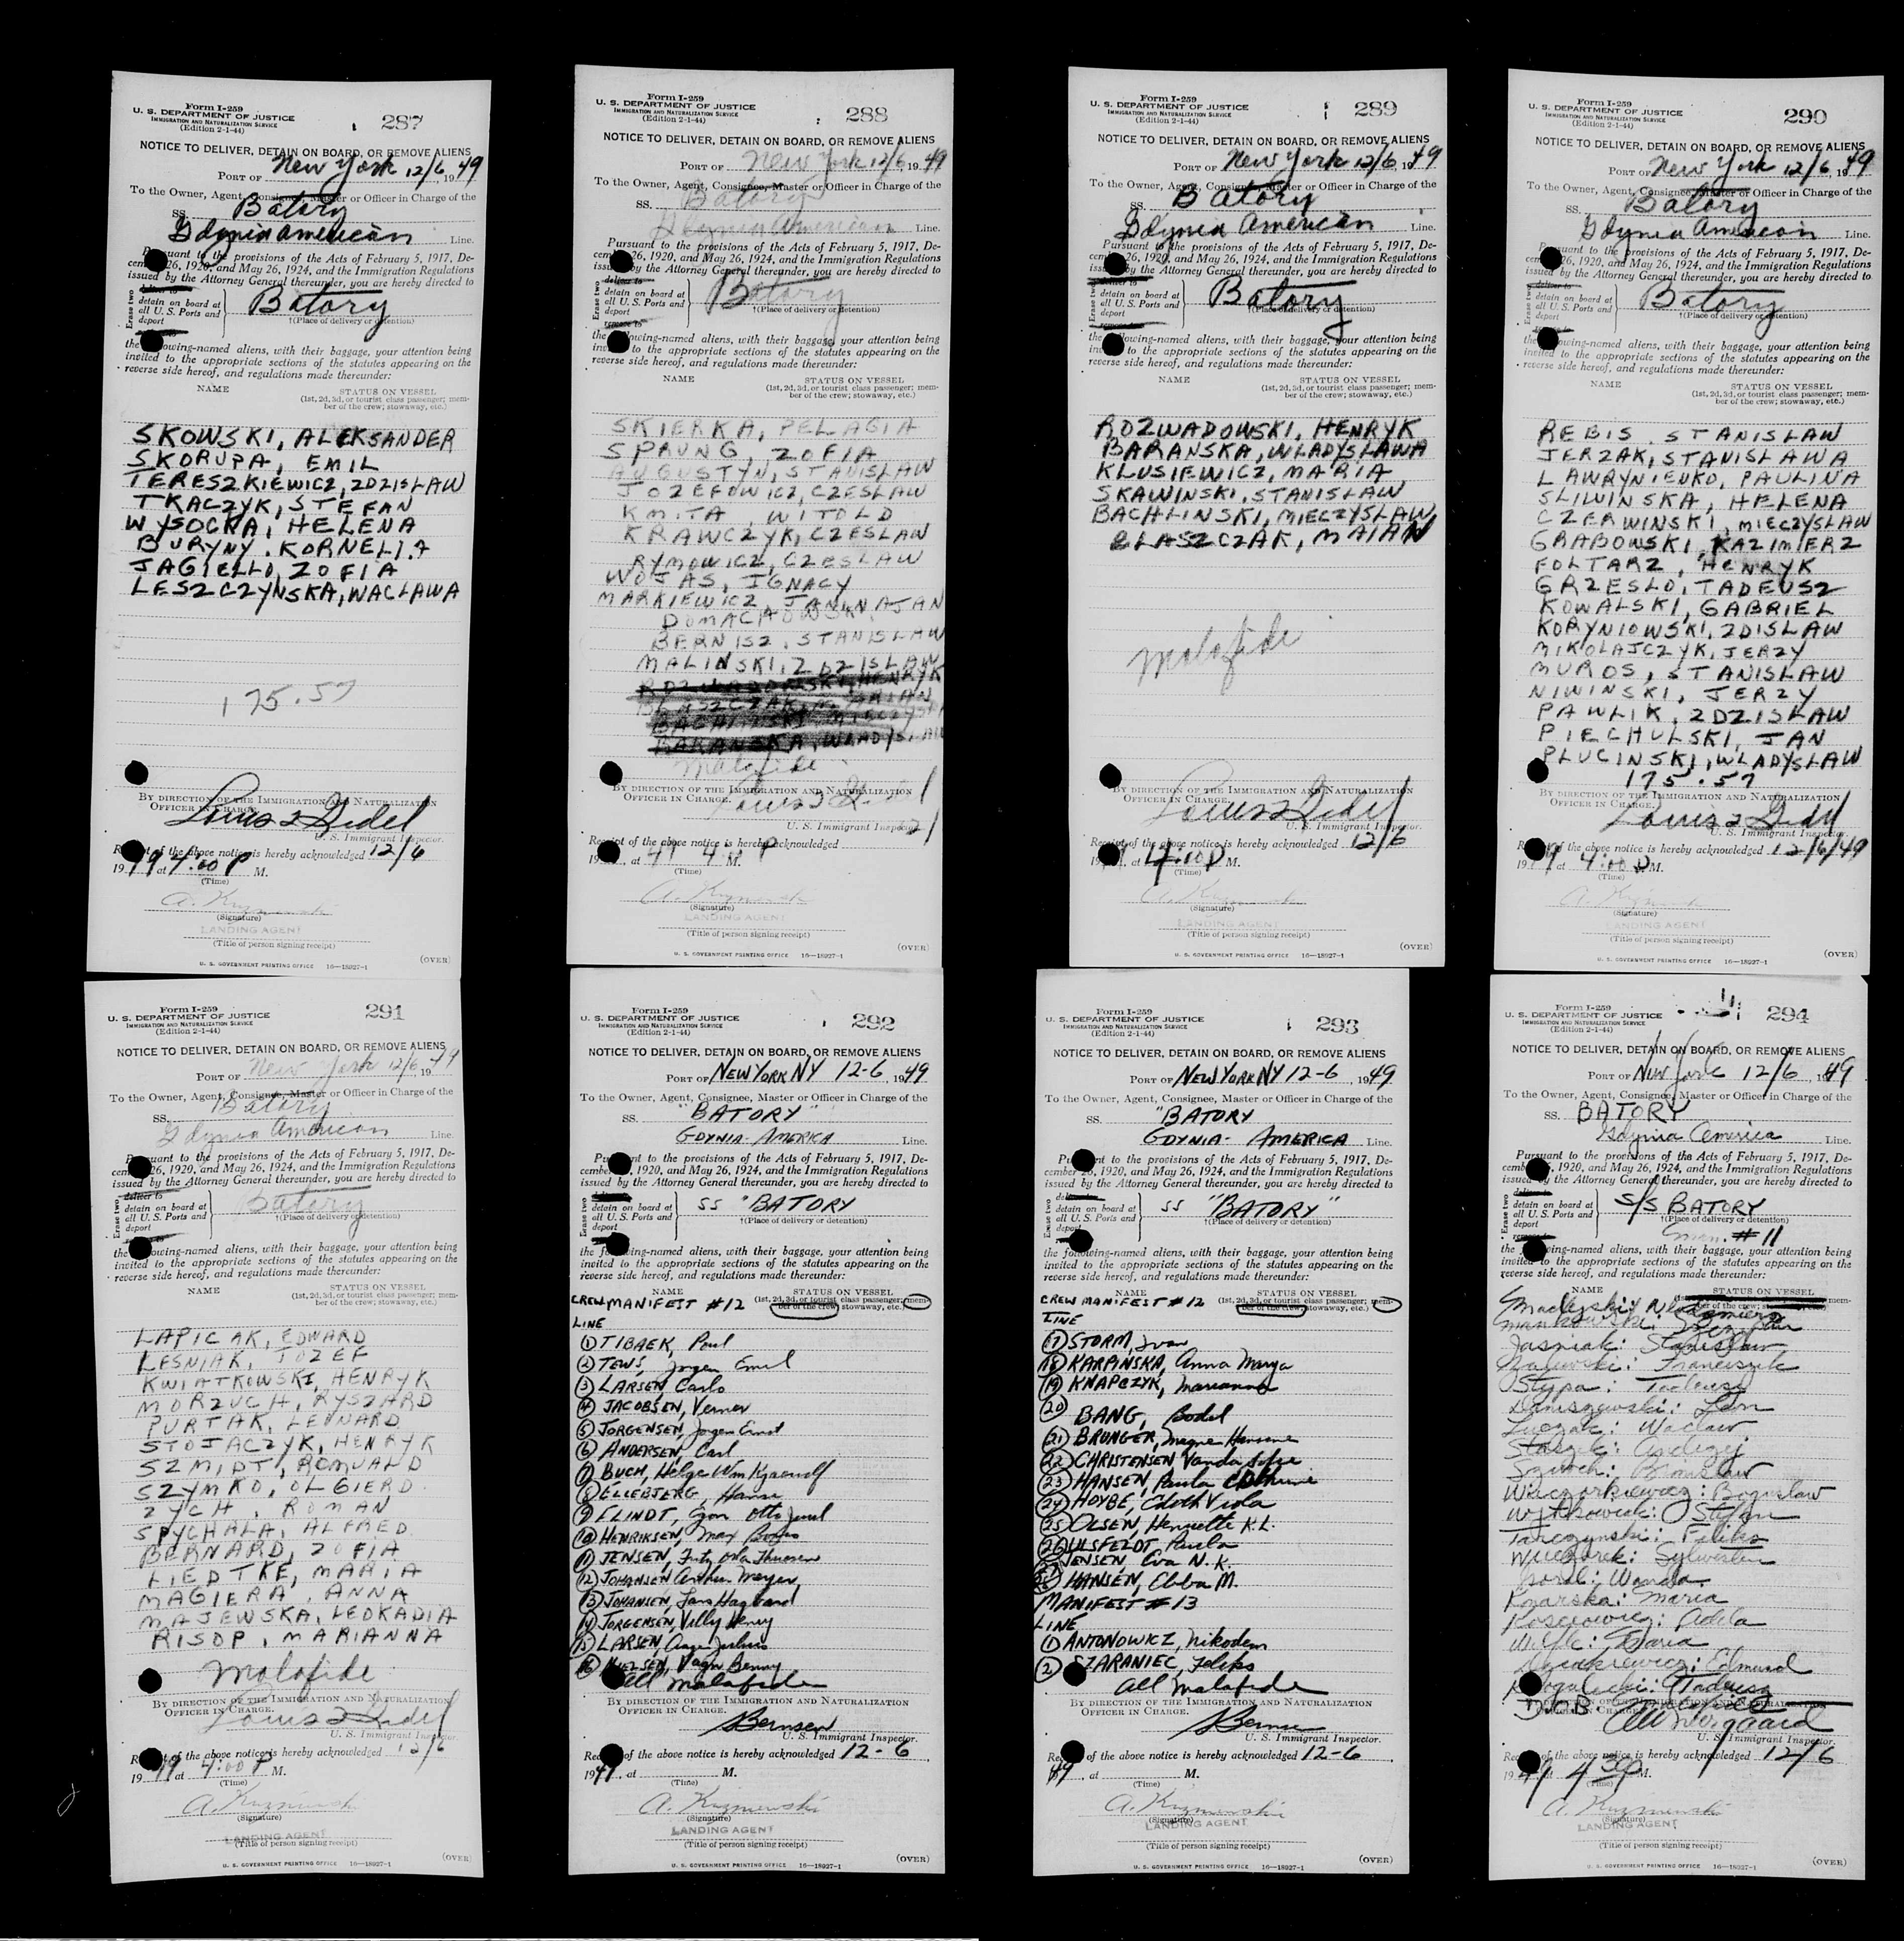 Form I-259
U. S. DEPARTMENT OF JUSTICE
IMMIGRATION AND NATURALIZATION SERVICE
(Edition 2-1-44)
287
NOTICE TO DELIVER, DETAIN ON BOARD, OR REMOVE ALIENS
PORT OF New York 12/6, 1949
To the Owner, Agent, Consignee, Master or Officer in Charge of the
SS. Batory
Gdynia American Line.
Pursuant to the provisions of the Acts of February 5, 1917, De-
cember 26, 1920, and May 26, 1924, and the Immigration Regulations
issued by the Attorney General thereunder, you are hereby directed to
Erase two
deliver to
detain on board at
all U. S. Ports and
deport
Batory
†(Place of delivery or detention)
the following-named aliens, with their baggage, your attention being
invited to the appropriate sections of the statutes appearing on the
reverse side hereof, and regulations made thereunder:
NAME STATUS ON VESSEL
(1st, 2d, 3d, or tourist class passenger; mem-
ber of the crew; stowaway, etc.)
SKOWSKI, ALEKSANDER
SKORUPA, EMIL
TERESZKIEWICZ, ZDZISLAW
TKACZYK, STEFAN
WYSOCKA, HELENA
BURYNY. KORNELIA
JAGIELLO, ZOFIA
LESZCZYNSKA, WACLAWA
175.57
BY DIRECTION OF THE IMMIGRATION AND NATURALIZATION
OFFICER IN CHARGE.
Louis Gidel
U. S. Immigrant Inspector.
Receipt of the above notice is hereby acknowledged 12/6
1949 at 4:00 P M.
(Time)
(Signature)
LANDING AGENT
(Title of person signing receipt)
U. S. GOVERNMENT PRINTING OFFICE 16—18927-1
(OVER)
Form I-259
U. S. DEPARTMENT OF JUSTICE
IMMIGRATION AND NATURALIZATION SERVICE
(Edition 2-1-44)
288
NOTICE TO DELIVER, DETAIN ON BOARD, OR REMOVE ALIENS
PORT OF New York 12/6, 1949
To the Owner, Agent, Consignee, Master or Officer in Charge of the
SS. Batory
Gdynia American Line.
Pursuant to the provisions of the Acts of February 5, 1917, De-
cember 26, 1920, and May 26, 1924, and the Immigration Regulations
issued by the Attorney General thereunder, you are hereby directed to
Erase two
deliver to
detain on board at
all U. S. Ports and
deport
remove to
Batory
†(Place of delivery or detention)
the following-named aliens, with their baggage, your attention being
invited to the appropriate sections of the statutes appearing on the
reverse side hereof, and regulations made thereunder:
NAME STATUS ON VESSEL
(1st, 2d, 3d, or tourist class passenger; mem-
ber of the crew; stowaway, etc.)
SKIERKA, PELAGIA
SPRUNG, ZOFIA
AUGUSTYN, STANISLAW
JOZEFOWICZ, CZESLAW
KMITA, WITOLD
KRAWCZYK, CZESLAW
RYMOWICZ, CZESLAW
WOJAS, IGNACY
MARKIEWICZ, JANINA JAN
DOMACHOWSKI
BERNISZ, STANISLAW
MALINSKI, ZDZISLAW
ROZWADOWSKI, HENRYK
BARANSKA, WLADYSLAW
Malafide
BY DIRECTION OF THE IMMIGRATION AND NATURALIZATION
OFFICER IN CHARGE.
U. S. Immigrant Inspector
Receipt of the above notice is hereby acknowledged
19 , at 49 4 P M.
(Time)
(Signature)
LANDING AGENT
(Title of person signing receipt)
U. S. GOVERNMENT PRINTING OFFICE 16—18927-1
(OVER)
Form I-259
U. S. DEPARTMENT OF JUSTICE
IMMIGRATION AND NATURALIZATION SERVICE
(Edition 2-1-44)
289
NOTICE TO DELIVER, DETAIN ON BOARD, OR REMOVE ALIENS
PORT OF New York 12/6, 1949
To the Owner, Agent, Consignee, Master or Officer in Charge of the
SS. Batory
Gdynia American Line.
Pursuant to the provisions of the Acts of February 5, 1917, De-
cember 26, 1920, and May 26, 1924, and the Immigration Regulations
issued by the Attorney General thereunder, you are hereby directed to
Erase two
deliver to
detain on board at
all U. S. Ports and
deport
remove to
Batory
†(Place of delivery or detention)
the following-named aliens, with their baggage, your attention being
invited to the appropriate sections of the statutes appearing on the
reverse side hereof, and regulations made thereunder:
NAME STATUS ON VESSEL
(1st, 2d, 3d, or tourist class passenger; mem-
ber of the crew; stowaway, etc.)
ROZWADOWSKI, HENRYK
BARANSKA, WLADYSLAWA
KLUSIEWICZ, MARIA
SKAWINSKI, STANISLAW
BACHLINSKI, MIECZYSLAW,
BLASZCZAK, MAIAN
Malafide
BY DIRECTION OF THE IMMIGRATION AND NATURALIZATION
OFFICER IN CHARGE.
Louis Gidel
U. S. Immigrant Inspector.
Receipt of the above notice is hereby acknowledged 12/6
19 , at 4:00 P M.
(Time)
(Signature)
LANDING AGENT
(Title of person signing receipt)
U. S. GOVERNMENT PRINTING OFFICE 16—18927-1
(OVER)
Form I-259
U. S. DEPARTMENT OF JUSTICE
IMMIGRATION AND NATURALIZATION SERVICE
(Edition 2-1-44)
290
NOTICE TO DELIVER, DETAIN ON BOARD, OR REMOVE ALIENS
PORT OF New York 12/6, 1949
To the Owner, Agent, Consignee, Master or Officer in Charge of the
SS. Batory
Gdynia American Line.
Pursuant to the provisions of the Acts of February 5, 1917, De-
cember 26, 1920, and May 26, 1924, and the Immigration Regulations
issued by the Attorney General thereunder, you are hereby directed to
Erase two
deliver to
detain on board at
all U. S. Ports and
deport
Batory
†(Place of delivery or detention)
the following-named aliens, with their baggage, your attention being
invited to the appropriate sections of the statutes appearing on the
reverse side hereof, and regulations made thereunder:
NAME STATUS ON VESSEL
(1st, 2d, 3d, or tourist class passenger; mem-
ber of the crew; stowaway, etc.)
REBIS, STANISLAW
JERZAK, STANISLAWA
LAWRYNIENKO, PAULINA
SLIWINSKA, HELENA
CZERWINSKI, MIECZYSLAW
GRABOWSKI, KAZIMIERZ
FOLTARZ, HENRYK
GRZESLO, TADEUSZ
KOWALSKI, GABRIEL
KORYNIOWSKI, ZDISLAW
MIKOLAJCZYK, JERZY
MUROS, STANISLAW
NIWINSKI, JERZY
PAWLIK, ZDZISLAW
PIECHULSKI, JAN
PLUCINSKI, WLADYSLAW
175.57
BY DIRECTION OF THE IMMIGRATION AND NATURALIZATION
OFFICER IN CHARGE.
Louis Gidel
U. S. Immigrant Inspector.
Receipt of the above notice is hereby acknowledged 12/6/49
1949 at 4:00 P M.
(Time)
(Signature)
LANDING AGENT
(Title of person signing receipt)
U. S. GOVERNMENT PRINTING OFFICE 16—18927-1
(OVER)
Form I-259
U. S. DEPARTMENT OF JUSTICE
IMMIGRATION AND NATURALIZATION SERVICE
(Edition 2-1-44)
291
NOTICE TO DELIVER, DETAIN ON BOARD, OR REMOVE ALIENS
PORT OF New York 12/6, 1949
To the Owner, Agent, Consignee, Master or Officer in Charge of the
SS. Batory
Gdynia American Line.
Pursuant to the provisions of the Acts of February 5, 1917, De-
cember 26, 1920, and May 26, 1924, and the Immigration Regulations
issued by the Attorney General thereunder, you are hereby directed to
Erase two
deliver to
detain on board at
all U. S. Ports and
deport
Batory
†(Place of delivery or detention)
the following-named aliens, with their baggage, your attention being
invited to the appropriate sections of the statutes appearing on the
reverse side hereof, and regulations made thereunder:
NAME STATUS ON VESSEL
(1st, 2d, 3d, or tourist class passenger; mem-
ber of the crew; stowaway, etc.)
LAPICAK, EDWARD
LESNIAK, JOZEF
KWIATKOWSKI, HENRYK
MORZUCH, RYSZARD
PURTAK, LENNARD
STOJACZYK, HENRYK
SZMIDT, ROMUALD
SZYMKO, OLGIERD.
ZYCH, ROMAN
SPYCHALA, ALFRED
BERNARD, ZOFIA
LIEDTKE, MARIA
MAGIERA, ANNA
MAJEWSKA, LEOKADIA
RISOP, MARIANNA
Malafide
BY DIRECTION OF THE IMMIGRATION AND NATURALIZATION
OFFICER IN CHARGE.
Louis Gidel
U. S. Immigrant Inspector.
Receipt of the above notice is hereby acknowledged 12/6
1949 at 4:00 P M.
(Time)
(Signature)
LANDING AGENT
(Title of person signing receipt)
U. S. GOVERNMENT PRINTING OFFICE 16—18927-1
(OVER)
Form I-259
U. S. DEPARTMENT OF JUSTICE
IMMIGRATION AND NATURALIZATION SERVICE
(Edition 2-1-44)
292
NOTICE TO DELIVER, DETAIN ON BOARD, OR REMOVE ALIENS
PORT OF NEW YORK NY 12-6, 1949
To the Owner, Agent, Consignee, Master or Officer in Charge of the
SS. "BATORY"
GDYNIA-AMERICA Line.
Pursuant to the provisions of the Acts of February 5, 1917, De-
cember 26, 1920, and May 26, 1924, and the Immigration Regulations
issued by the Attorney General thereunder, you are hereby directed to
Erase two
deliver to
detain on board at
all U. S. Ports and
deport
SS "BATORY
†(Place of delivery or detention)
the following-named aliens, with their baggage, your attention being
invited to the appropriate sections of the statutes appearing on the
reverse side hereof, and regulations made thereunder:
NAME STATUS ON VESSEL
CREW MANIFEST #12 (1st, 2d, 3d, or tourist class passenger; mem-
ber of the crew; stowaway, etc.)
LINE
① TIBAEK, Poul
② TEWS, Jorgen Emil
③ LARSEN, Carlo
④ JACOBSEN, Verner
⑤ JORGENSEN, Jorgen Ernst
⑥ ANDERSEN, Carl
⑦ BUCH, Helge Wm
⑧ ELLEBJERG, Hans
⑨ FLINDT, Egon Otto
⑩ HENRIKSEN, Max
⑪ JENSEN, Fritz
⑫ JOHANSEN Arthur Meyer
⑬ JOHANSEN, Lars
⑭ JORGENSEN, Villy Henry
⑮ LARSEN, Aage
⑯ NIELSEN, Vagn Benny
All malafide
BY DIRECTION OF THE IMMIGRATION AND NATURALIZATION
OFFICER IN CHARGE.
Bernsen
U. S. Immigrant Inspector.
Receipt of the above notice is hereby acknowledged 12-6,
1949, at M.
(Time)
(Signature)
LANDING AGENT
(Title of person signing receipt)
U. S. GOVERNMENT PRINTING OFFICE 16—18927-1
(OVER)
Form I-259
U. S. DEPARTMENT OF JUSTICE
IMMIGRATION AND NATURALIZATION SERVICE
(Edition 2-1-44)
293
NOTICE TO DELIVER, DETAIN ON BOARD, OR REMOVE ALIENS
PORT OF NEW YORK NY 12-6, 1949
To the Owner, Agent, Consignee, Master or Officer in Charge of the
SS. "BATORY
GDYNIA-AMERICA Line.
Pursuant to the provisions of the Acts of February 5, 1917, De-
cember 26, 1920, and May 26, 1924, and the Immigration Regulations
issued by the Attorney General thereunder, you are hereby directed to
Erase two
deliver to
detain on board at
all U. S. Ports and
deport
SS "BATORY"
†(Place of delivery or detention)
the following-named aliens, with their baggage, your attention being
invited to the appropriate sections of the statutes appearing on the
reverse side hereof, and regulations made thereunder:
NAME STATUS ON VESSEL
CREW MANIFEST #12 (1st, 2d, 3d, or tourist class passenger; mem-
ber of the crew; stowaway, etc.)
LINE
⑰ STORM, Ivar
⑱ KARPINSKA, Anna Marya
⑲ KNAPCZYK, Marianna
⑳ BANG, Bodil
㉑ BRUNGER, Magne
㉒ CHRISTENSEN Vanda Sofie
㉓ HANSEN, Paula
㉔ HOYBE, Edith Viola
㉕ OLSEN, Henriette K.L.
㉖ ULSFELDT, Paula
JENSEN, Eva N. K.
HANSEN, Ebba M.
MANIFEST #13
LINE
① ANTONOWICZ, Nikodem
② SZARANIEC, Feliks
All malafide
BY DIRECTION OF THE IMMIGRATION AND NATURALIZATION
OFFICER IN CHARGE.
U. S. Immigrant Inspector.
Receipt of the above notice is hereby acknowledged 12-6,
1949, at M.
(Time)
(Signature)
LANDING AGENT
(Title of person signing receipt)
U. S. GOVERNMENT PRINTING OFFICE 16—18927-1
(OVER)
Form I-259
U. S. DEPARTMENT OF JUSTICE
IMMIGRATION AND NATURALIZATION SERVICE
(Edition 2-1-44)
294
NOTICE TO DELIVER, DETAIN ON BOARD, OR REMOVE ALIENS
PORT OF New York 12/6, 1949
To the Owner, Agent, Consignee, Master or Officer in Charge of the
SS. BATORY
Gdynia America Line.
Pursuant to the provisions of the Acts of February 5, 1917, De-
cember 26, 1920, and May 26, 1924, and the Immigration Regulations
issued by the Attorney General thereunder, you are hereby directed to
Erase two
deliver to
detain on board at
all U. S. Ports and
deport
S/S BATORY
†(Place of delivery or detention)
Man. #11
the following-named aliens, with their baggage, your attention being
invited to the appropriate sections of the statutes appearing on the
reverse side hereof, and regulations made thereunder:
NAME STATUS ON VESSEL
Jasniak: Stanislaw
Zalewski: Franciszek
Stypa: Tadeusz
Daniszewski: Jan
Luczak: Waclaw
Staszek: Andrzej
Szwoch: Bronislaw
Wieczorkiewicz: Boguslaw
Witkowski: Stefan
Tarczynski: Feliks
Wieczorek: Sylwester
Gorol: Wanda
Knarska: Maria
Koscowicz: Adela
Wilk: Daria
Dziekiewicz: Edmund
Rogalski: Tadeusz
U. S. Immigrant Inspector.
Receipt of the above notice is hereby acknowledged 12/6
1949 at 4 30 P M.
(Time)
(Signature)
LANDING AGENT
(Title of person signing receipt)
U. S. GOVERNMENT PRINTING OFFICE 16—18927-1
(OVER)